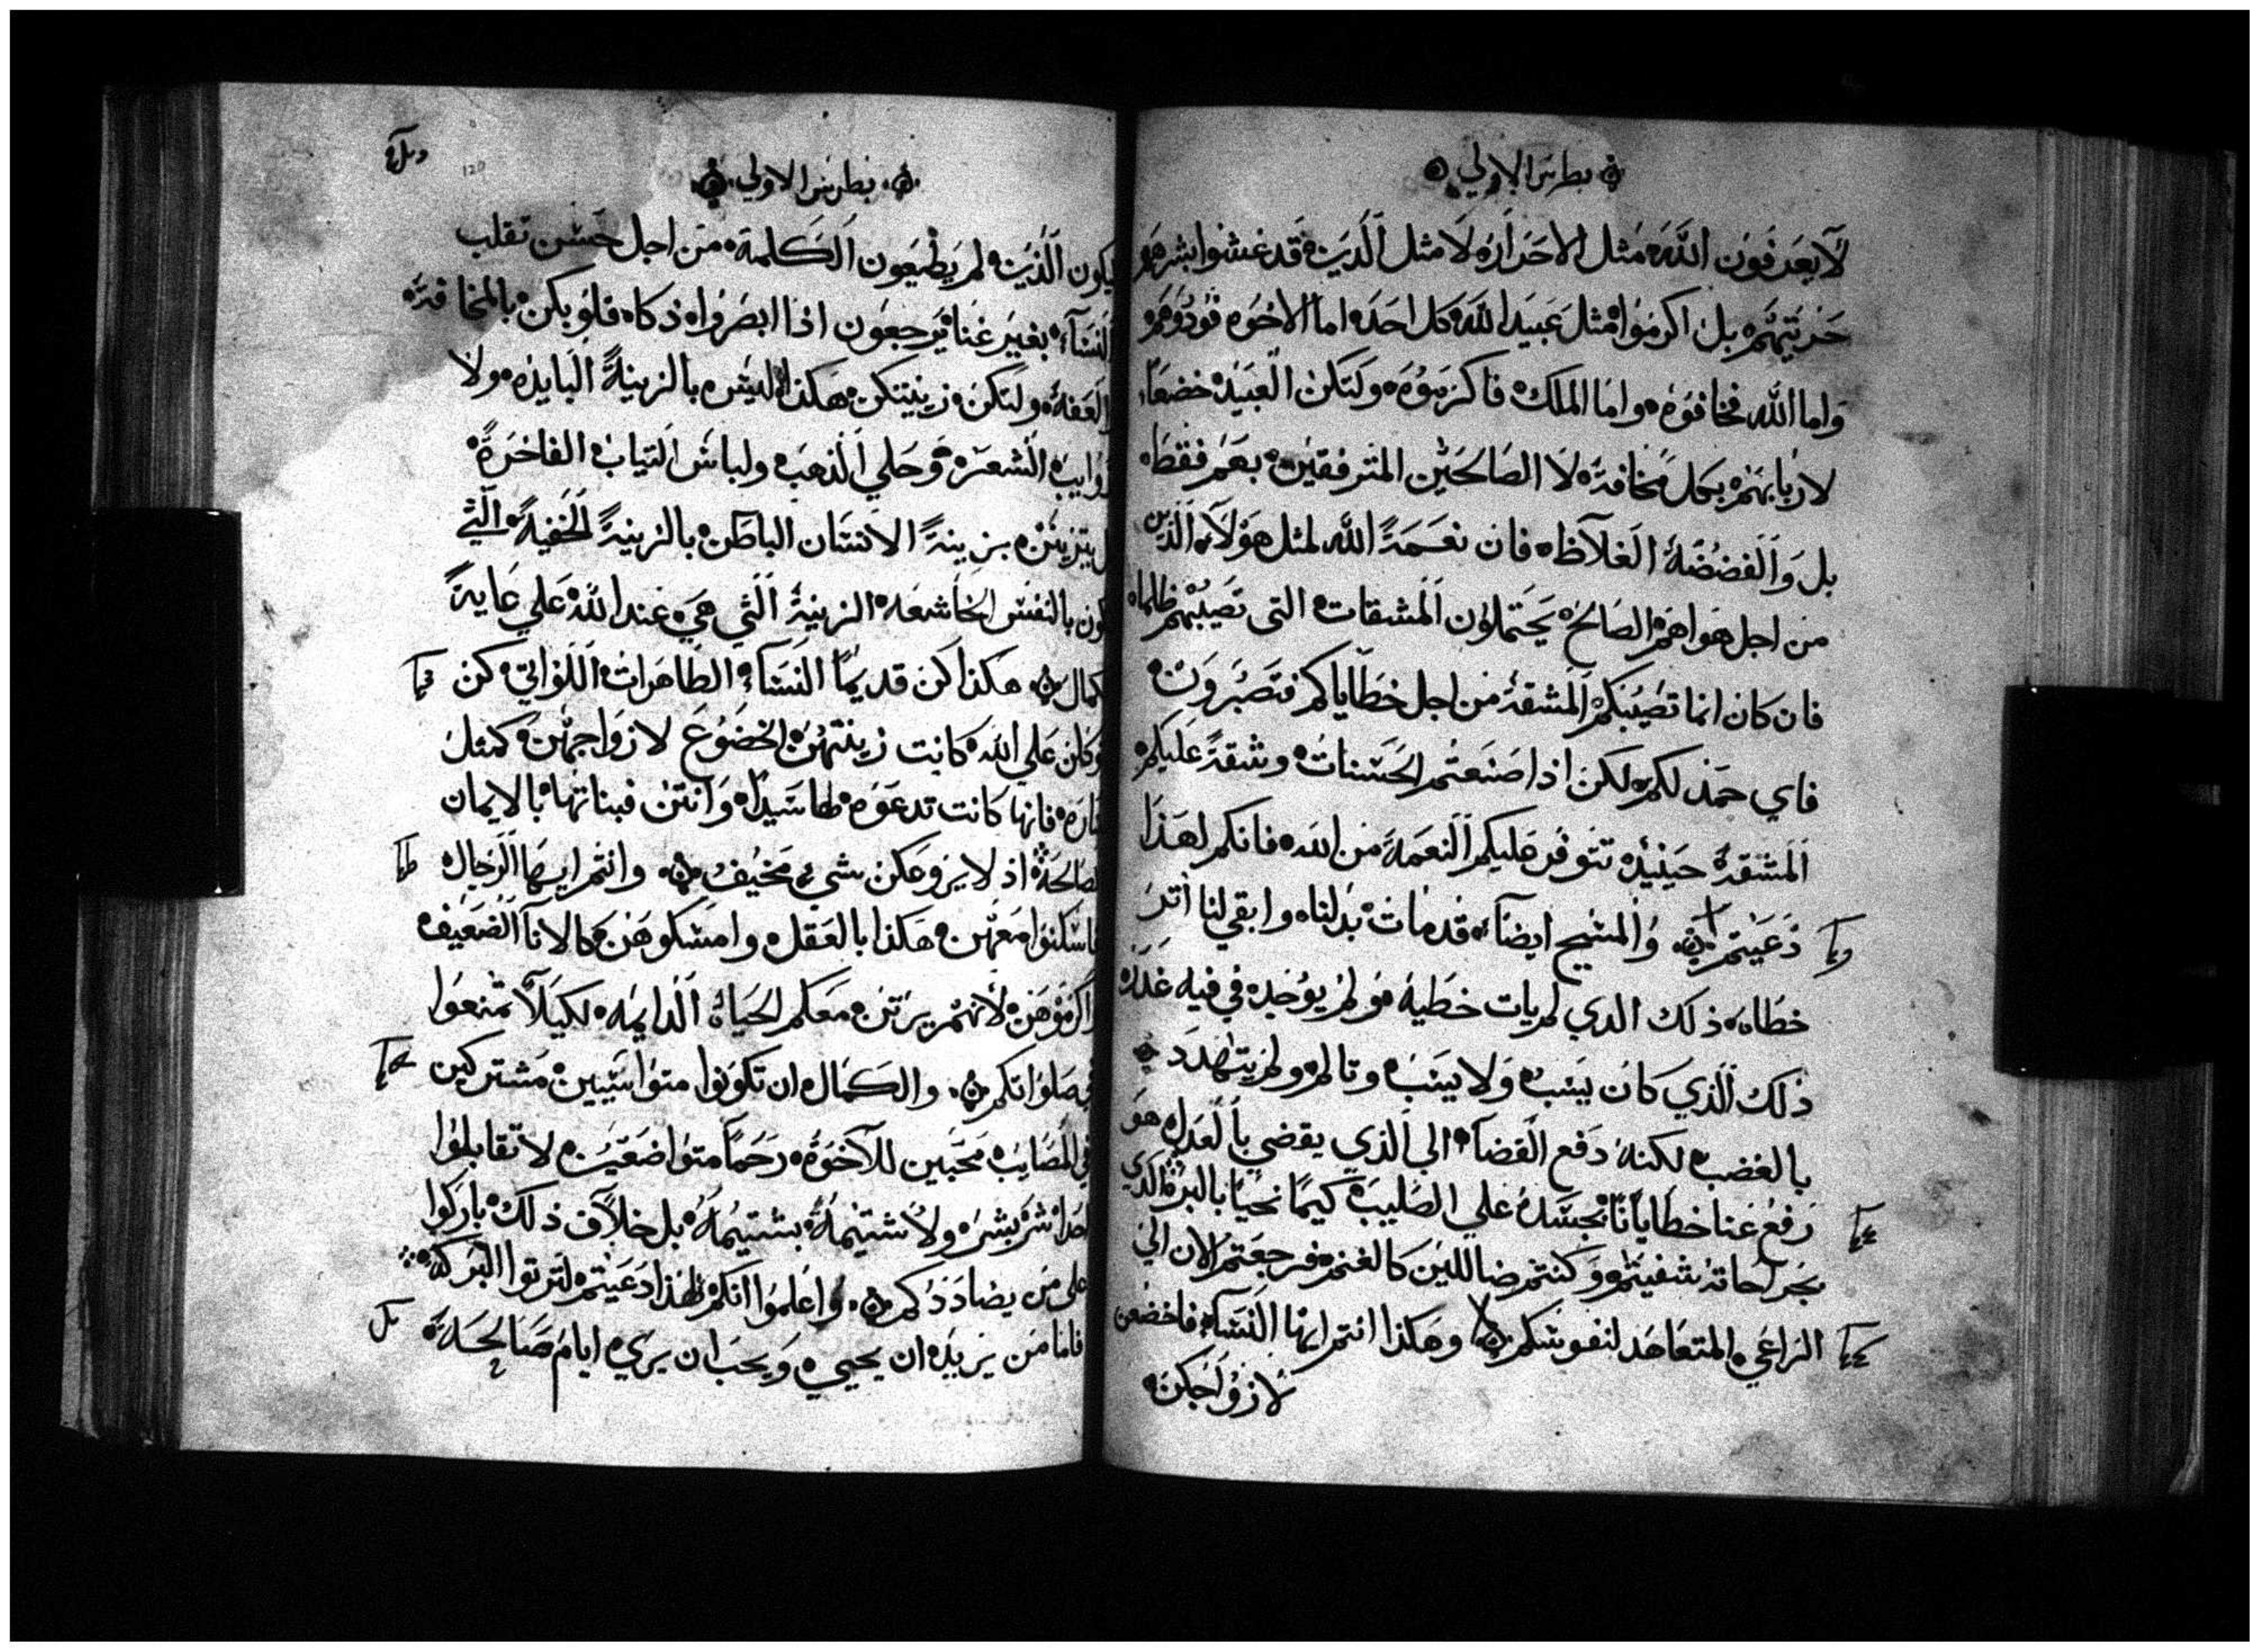 بطرس الاولي
لا يعرفون الله مثل الاحرار لا مثل الدين قد غشوا بشرهم
حريتهم بل اكرموا مثل عبيد الله كل احد اما الاخوه فودوهم
واما الله فخافوه واما الملك فاكرموه ولتكن العبيد خضعا
لاربابهم بكل مخافة لا الصالحين المترفقين بهم فقط
بل والفضضة الغلاظ فان نعمة الله لمثل هولاء الذين
من اجل هواهم الصالح يحتملون المشقات التى تصيبهم ظلما
فان كان انما تصيبكم المشقة من اجل خطاياكم فتصبرون
فاي حمد لكم لكن اذا صنعتم الحسنات وشقة عليكم
المشقة حينيد تتوفر عليكم النعمة من الله فانكم لهذا
دعيتم والمسيح ايضا قد مات بدلنا وابقي لنا اثر
خطاه ذلك الدي لم يات خطية ولم يوجد في فيه غدر
ذلك الذي كان يسب ولا يسب وتالم ولم يتهدد
بالغضب لكنه دفع القضا الى الذي يقضي بالعدل هو
رفع عنا خطايانا بجسده علي الصليب كيما نحيا بالبر الذي
بجراحاته شفيتم وكنتم ضاللين كالغنم فرجعتم الان الي
الراعي المتعاهد لنفوسكم وهكذا انتم ايها النساء فاخضعن
لازواجكن
بطرس الاولي
120
ليكون الذين لم يطيعون الكلمة من اجل حسن تقلب
النساء بغير عنا يرجعون اذا ابصروا ذكاه فلو يكن بالمخافة
والعفة ولتكن زينتكن هكذا ليس بالزينة البايده ولا
ذوايب الشعر وحلي الذهب ولباس التياب الفاخرة
بل يتزينن بزينة الانسان الباطن بالزينة الخفية التي
تكون بالنفس الخاشعه الزينة التي هي عند الله علي غاية
كمال هكذا كن قديما النساء الطاهرات اللواتي كن
توكلن علي الله كانت زينتهن الخضوع لازواجهن كمثل
سارة فانها كانت تدعوه لها سيدا وانتن فبناتها بالايمان
الصالحة اذ لا يروعكن شيء مخيف وانتم ايها الرجال
فاسكنوا معهن هكذا بالعقل وامسكوهن كالانا الضعيف
واكرموهن لانهم يرتن معكم الحياة الدايمه لكيلا تمنعوا
في صلواتكم والكمال ان تكونوا متواسيين مشتركين
في المصايب محبين للاخوة رحما متواضعين لا تقابلوا
احدا شر بشر ولا شتيمة بشتيمة بل خلاف ذلك باركوا
على من يضاددكم واعلموا انكم لهذا دعيتم لترتوا البركة
فاما من يريد ان يحيي ويحب ان يري ايام صالحة